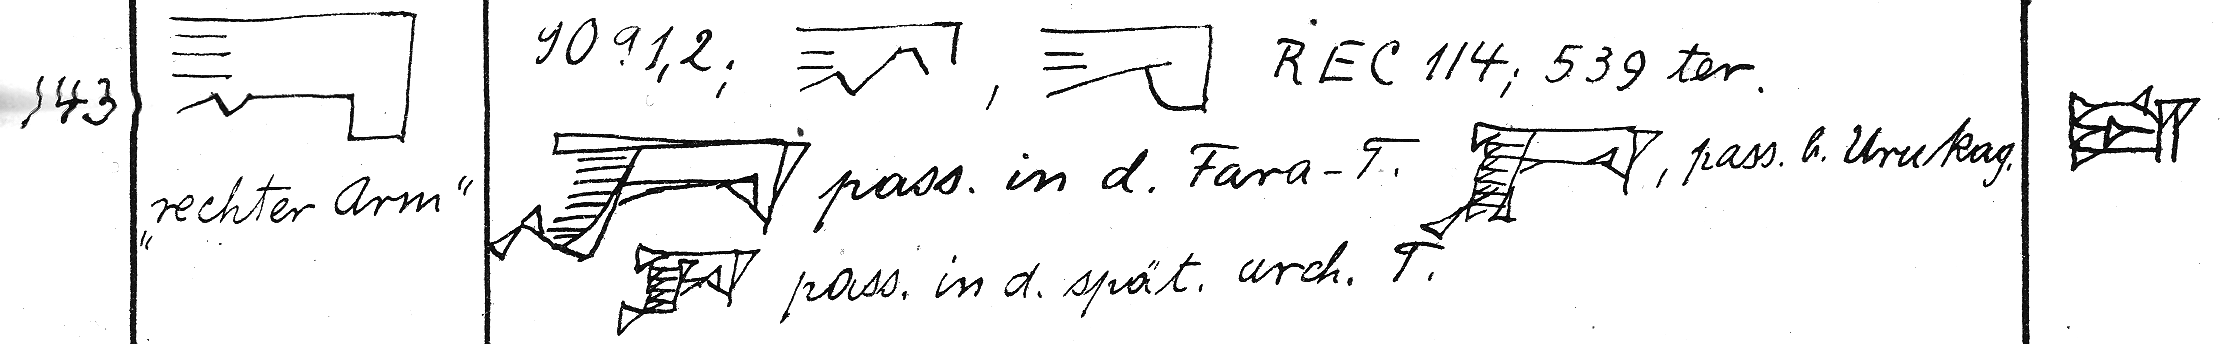 143
„rechter Arm“
9091,2; , REC 114; 539 ter.
pass. in d. Fara-T. , pass. b. Urukag.
pass. in d. spät. arch. T.